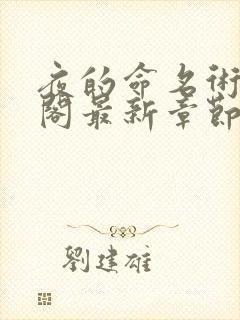 夜的命名術
閣最新章節
劉建雄